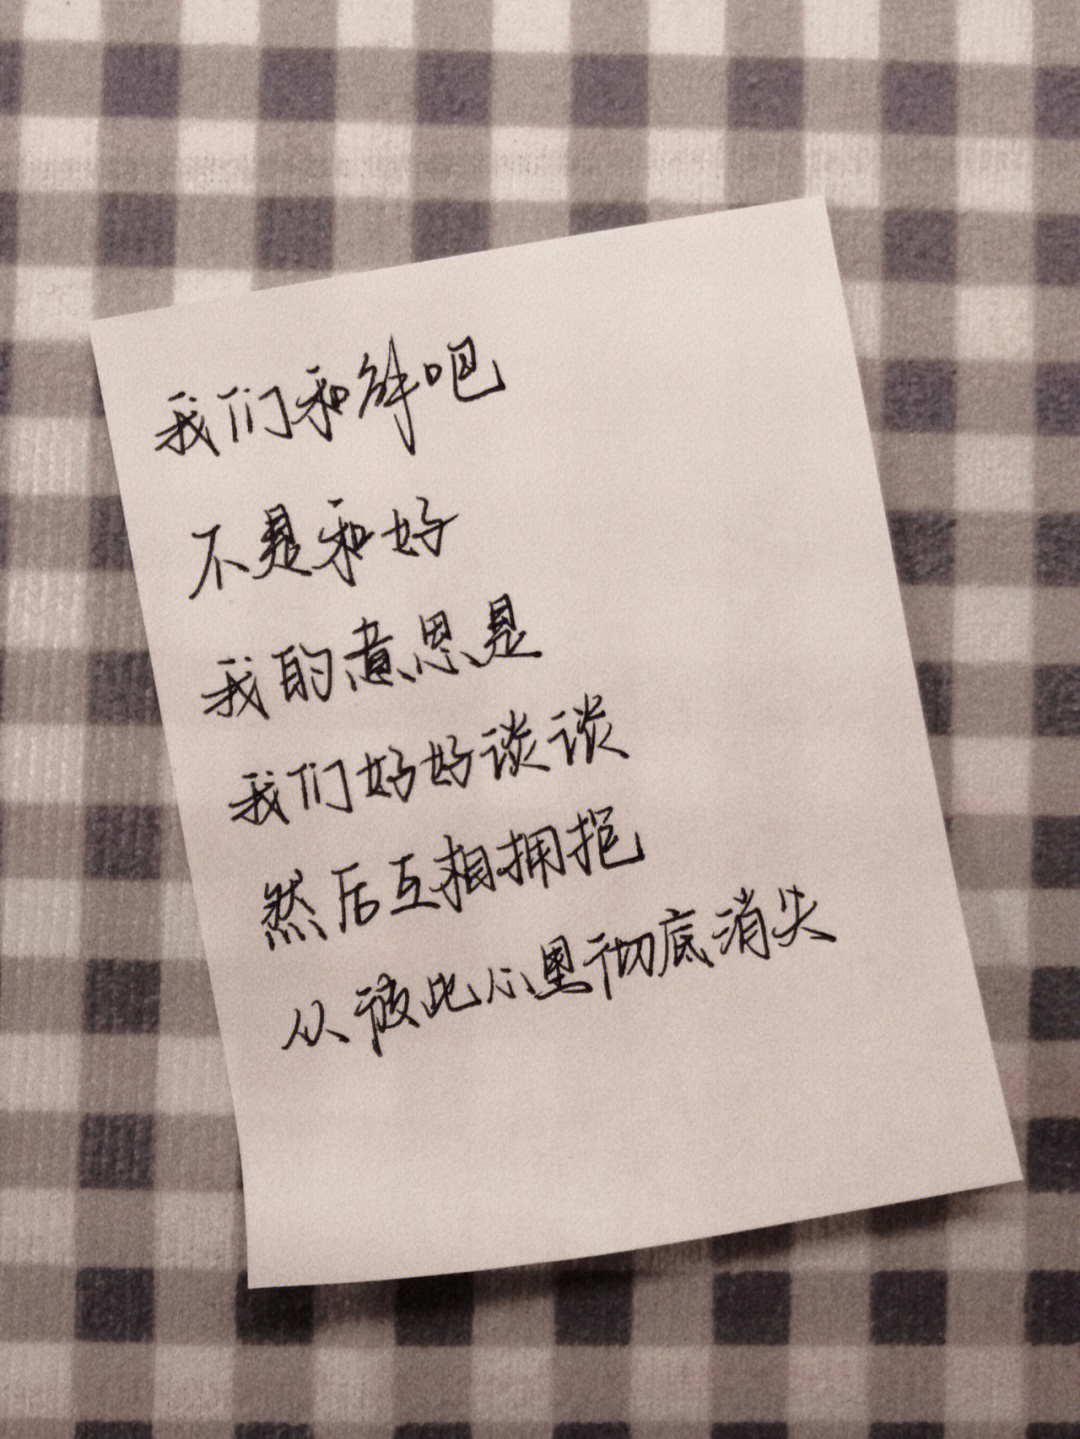 我们和解吧
不是和好
我的意思是
我们好好谈谈
然后互相拥抱
从彼此心里彻底消失